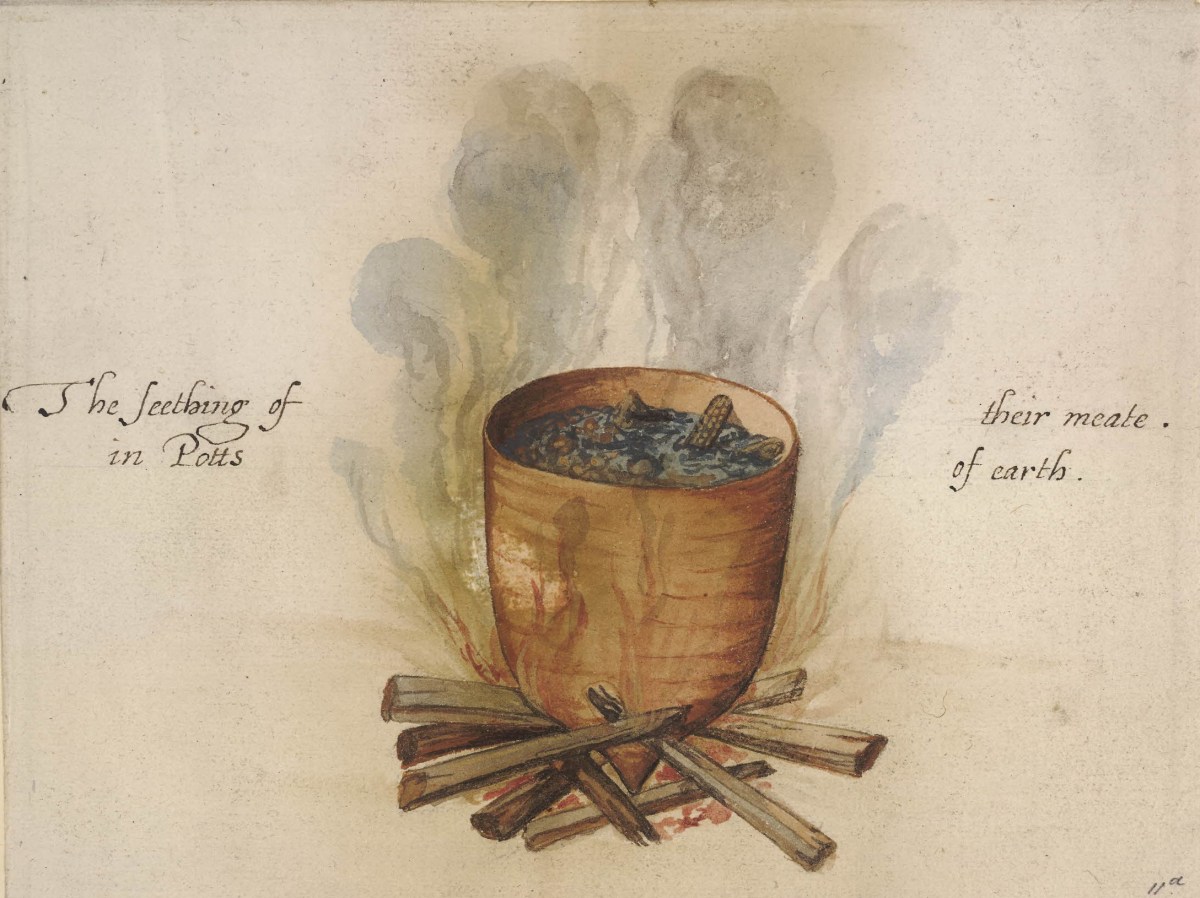 The seething of their meate .
in Potts of earth .
11a